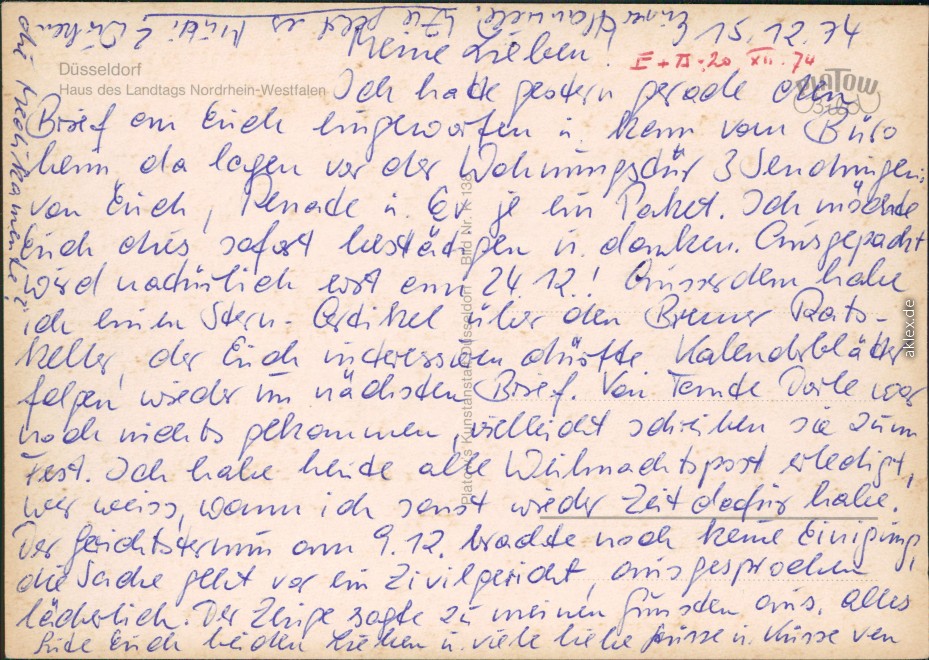 15.12.74
Meine Lieben!
I + II. 20. XII. 74
Düsseldorf
Haus des Landtags Nordrhein-Westfalen
PlaTow
Ich hatte gestern gerade den
Brief an Euch eingeworfen u. kam vom Büro
heim, da lagen vor der Wohnungstür 3 Sendungen:
von Euch, Renate u. Ev je ein Paket. Ich möchte
Euch dies sofort bestätigen u. danken. Ausgepackt
wird natürlich erst am 24.12.! Ausserdem habe
ich einen Stern-Artikel über den Bremer Rats-
keller, der Euch interessieren dürfte. Kalenderblätter
folgen wieder im nächsten Brief. Von Tante Dorle war
noch nichts gekommen, vielleicht schreiben sie zum
Fest. Ich habe heute alle Weihnachtspost erledigt,
wer weiss, wann ich sonst wieder Zeit dafür habe.
Der Gerichtstermin am 9.12. brachte noch keine Einigung,
die Sache geht vor ein Zivilgericht, ausgesprochen
lächerlich. Der Zeuge sagte zu meinen Gunsten aus. Alles
Gute Euch beiden Lieben u. viele liebe Grüsse u. Küsse von
Eurer
Wie geht es
die
Bild Nr. K 138
aklex.de